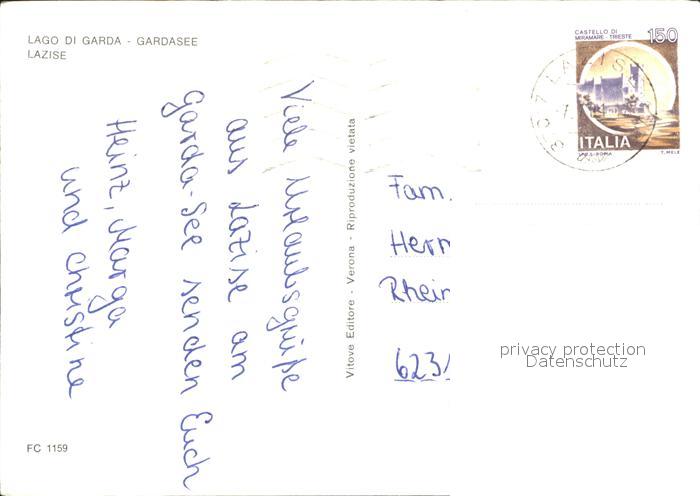 LAGO DI GARDA - GARDASEE
LAZISE
Viele Urlaubsgrüße
aus Lazise am
Garda-See senden Euch
Heinz, Marga
und Christine
FC 1159
Vitove Editore - Verona - Riproduzione vietata
CASTELLO DI
MIRAMARE - TRIESTE
150
ITALIA
I.P.Z.S. ROMA
T. MELE
LAZISE
Fam.
Herr
Rhein
623
privacy protection
Datenschutz